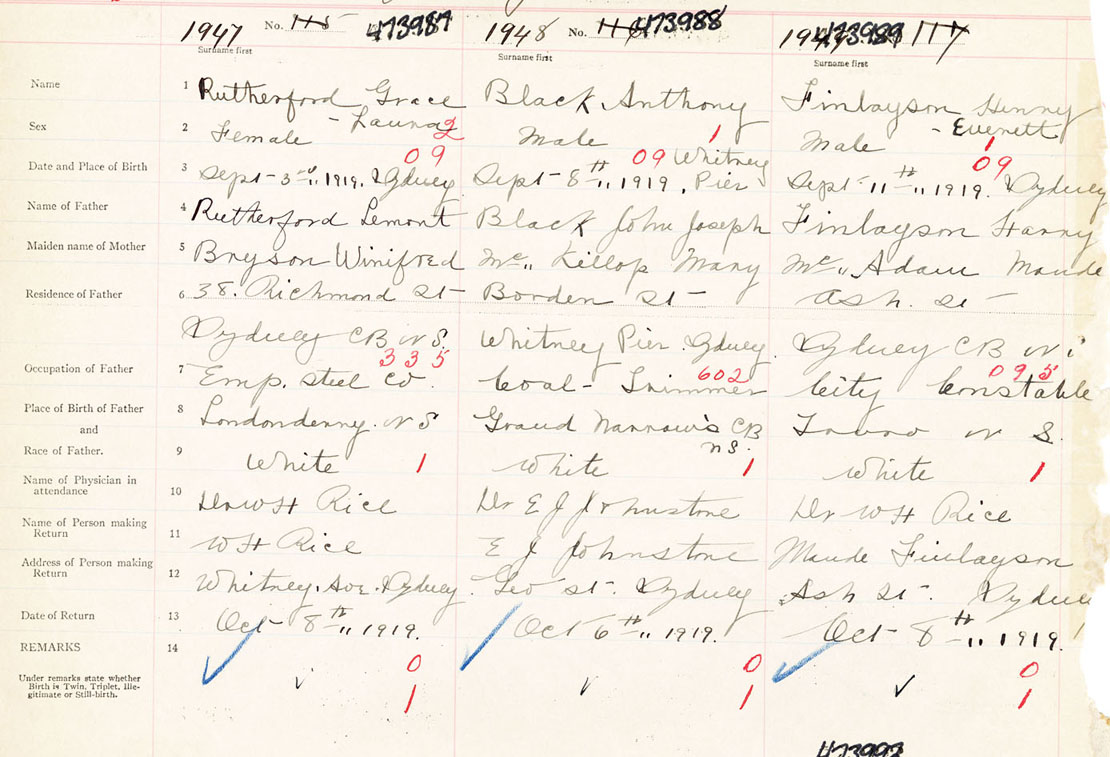 1947 No. 115 473987 1948 No. 116 473988 1949 473989 117
Surname first Surname first Surname first
Name 1 Rutherford Grace Black Anthony Finlayson Henry
- Launa - Everett
Sex 2 Female 2 Male 1 Male 1
09 09 Whitney 09
Date and Place of Birth 3 Sept 3rd 1919. Sydney Sept 8th 1919. Pier Sept 11th 1919. Sydney
Name of Father 4 Rutherford Lemont Black John Joseph Finlayson Harry
Maiden name of Mother 5 Bryson Winifred Mc Killop Mary Mc Adam Maude
Residence of Father 6 38. Richmond St Borden St Ash. St
Sydney CB N S. Whitney Pier. Sydney Sydney CB N S
335 602 095
Occupation of Father 7 Emp. Steel Co. Coal - Trimmer City Constable
Place of Birth of Father 8 Londonderry. N S Grand Narrow's CB Truro N S.
and N S.
Race of Father. 9 White 1 White 1 White 1
Name of Physician in
attendance 10 Dr W H Rice Dr E J Johnstone Dr W H Rice
Name of Person making
Return 11 W H Rice E J Johnstone Maude Finlayson
Address of Person making
Return 12 Whitney. Ave. Sydney. Geo St. Sydney Ash St. Sydney
Date of Return 13 Oct 8th 1919. Oct 6th 1919. Oct 8th 1919.
REMARKS 14
0 0 0
Under remarks state whether
Birth is Twin, Triplet, Ille-
gitimate or Still-birth. 1 1 1
473992